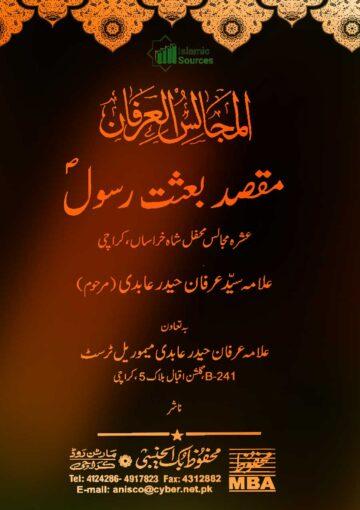 Islamic
Sources
المجالس العرفان
مقصد بعثت رسولؐ
عشرہ مجالس محفل شاہ خراساں، کراچی
علامہ سیّد عرفان حیدر عابدی (مرحوم)
بہ تعاون
علامہ عرفان حیدر عابدی میموریل ٹرسٹ
B-241، گلشن اقبال بلاک 5، کراچی
ناشر
محفوظ بک ایجنسی
مارٹن روڈ
کراچی
Tel: 4124286- 4917823 Fax: 4312882
E-mail: anisco@cyber.net.pk
محفوظ
MBA